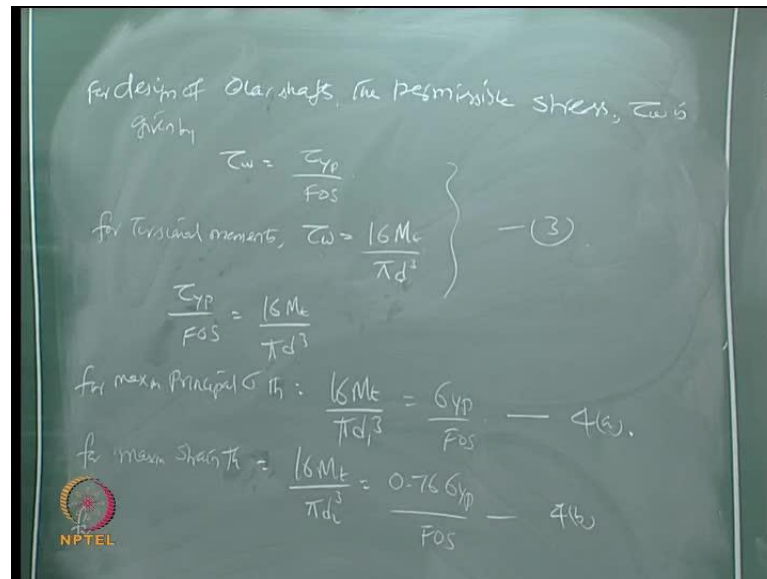 For design of Olar shaft, The permissible stress, τw is
given by
τw = τyp / FOS
for Torsional moments, τw = 16 Mt / πd³ } — (3).
τyp / FOS = 16 Mt / πd³
for maxm Principal σ Th: 16 Mt / πd₁³ = σyp / FOS — 4(a).
for maxm strain Th = 16 Mt / πd₂³ = 0.76 σyp / FOS — 4(b)
NPTEL